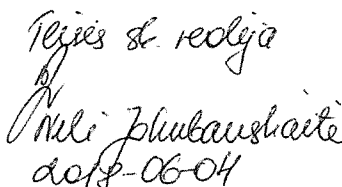 Teisės sk. vedėja
Neli Jakubauskaitė
2018-06-04